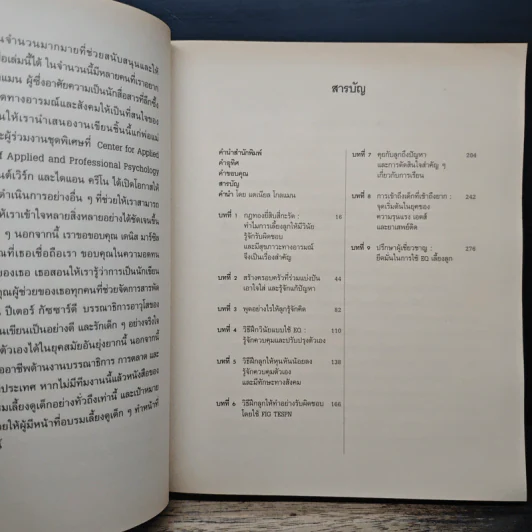 นจำนวนมากมายที่ช่วยสนับสนุนและให้
อเล่มนี้ได้ ในจำนวนนี้มีหลายคนที่เราอยาก
แมน ผู้ซึ่งอาศัยความเป็นนักสื่อสารที่ลึกซึ้ง
ดทางอารมณ์และสังคมให้เป็นที่สนใจของ
นให้เรานำเสนองานเขียนชิ้นนี้แก่พ่อแม่
ะผู้ร่วมงานชุดพิเศษที่ Center for Applied
f Applied and Professional Psychology
นด์เวิร์ก และไดแอน ครีโน ได้เปิดโอกาสให้
ดำเนินการอย่างอื่น ๆ ที่ช่วยให้เราสามารถ
ให้เราเข้าใจหลายสิ่งหลายอย่างได้ชัดเจนขึ้น
ๆ นอกจากนี้ เราขอขอบคุณ เดนิส มาร์ซิล
ณที่เธอเชื่อถือเรา ขอบคุณในความอดทน
ของเธอ เธอสอนให้เรารู้ว่าการเป็นนักเขียน
คุณผู้ช่วยของเธอทุกคนที่ช่วยจัดการสารพัด
ปีเตอร์ กัซซาร์ดี บรรณาธิการอาวุโสของ
นเขียนเป็นอย่างดี และรักเด็ก ๆ อย่างจริงใจ
ตัวเองได้ในยุคสมัยอันยุ่งยากนี้ นอกจากนี้
ออาชีพด้านงานบรรณาธิการ การตลาด และ
ประเทศ หากไม่มีทีมงานนี้แล้วหนังสือของ
รมเลี้ยงดูเด็กอย่างทั่วถึงเท่านี้ และเป้าหมาย
ยให้ผู้มีหน้าที่อบรมเลี้ยงดูเด็ก ๆ ทำหน้าที่
สารบัญ
คำนำสำนักพิมพ์
คำอุทิศ
คำขอบคุณ
สารบัญ
คำนำ โดย แดเนียล โกลแมน
บทที่ 1 กฎทองยี่สิบสี่กะรัต : 16
ทำไมการเลี้ยงลูกให้มีวินัย
รู้จักรับผิดชอบ
และมีสุขภาวะทางอารมณ์
จึงเป็นเรื่องสำคัญ
บทที่ 2 สร้างครอบครัวที่ร่วมแบ่งปัน 44
เอาใจใส่ และรู้จักแก้ปัญหา
บทที่ 3 พูดอย่างไรให้ลูกรู้จักคิด 82
บทที่ 4 วิธีฝึกวินัยแบบใช้ EQ : 110
รู้จักควบคุมและปรับปรุงตัวเอง
บทที่ 5 วิธีฝึกลูกให้หุนหันน้อยลง 138
รู้จักควบคุมตัวเอง
และมีทักษะทางสังคม
บทที่ 6 วิธีฝึกลูกให้ทำอย่างรับผิดชอบ 166
โดยใช้ FIG TESPN
บทที่ 7 คุยกับลูกถึงปัญหา 204
และการตัดสินใจสำคัญ ๆ
เกี่ยวกับการเรียน
บทที่ 8 การเข้าถึงเด็กที่เข้าถึงยาก : 242
จุดเริ่มต้นในยุคของ
ความรุนแรง เอดส์
และยาเสพย์ติด
บทที่ 9 ปรึกษาผู้เชี่ยวชาญ : 276
ยึดมั่นในการใช้ EQ เลี้ยงลูก